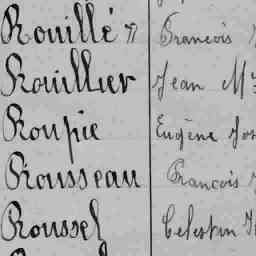 Rouillé François
Rouillier Jean M
Roupie Eugène Jos
Rousseau François
Roussel Celestin